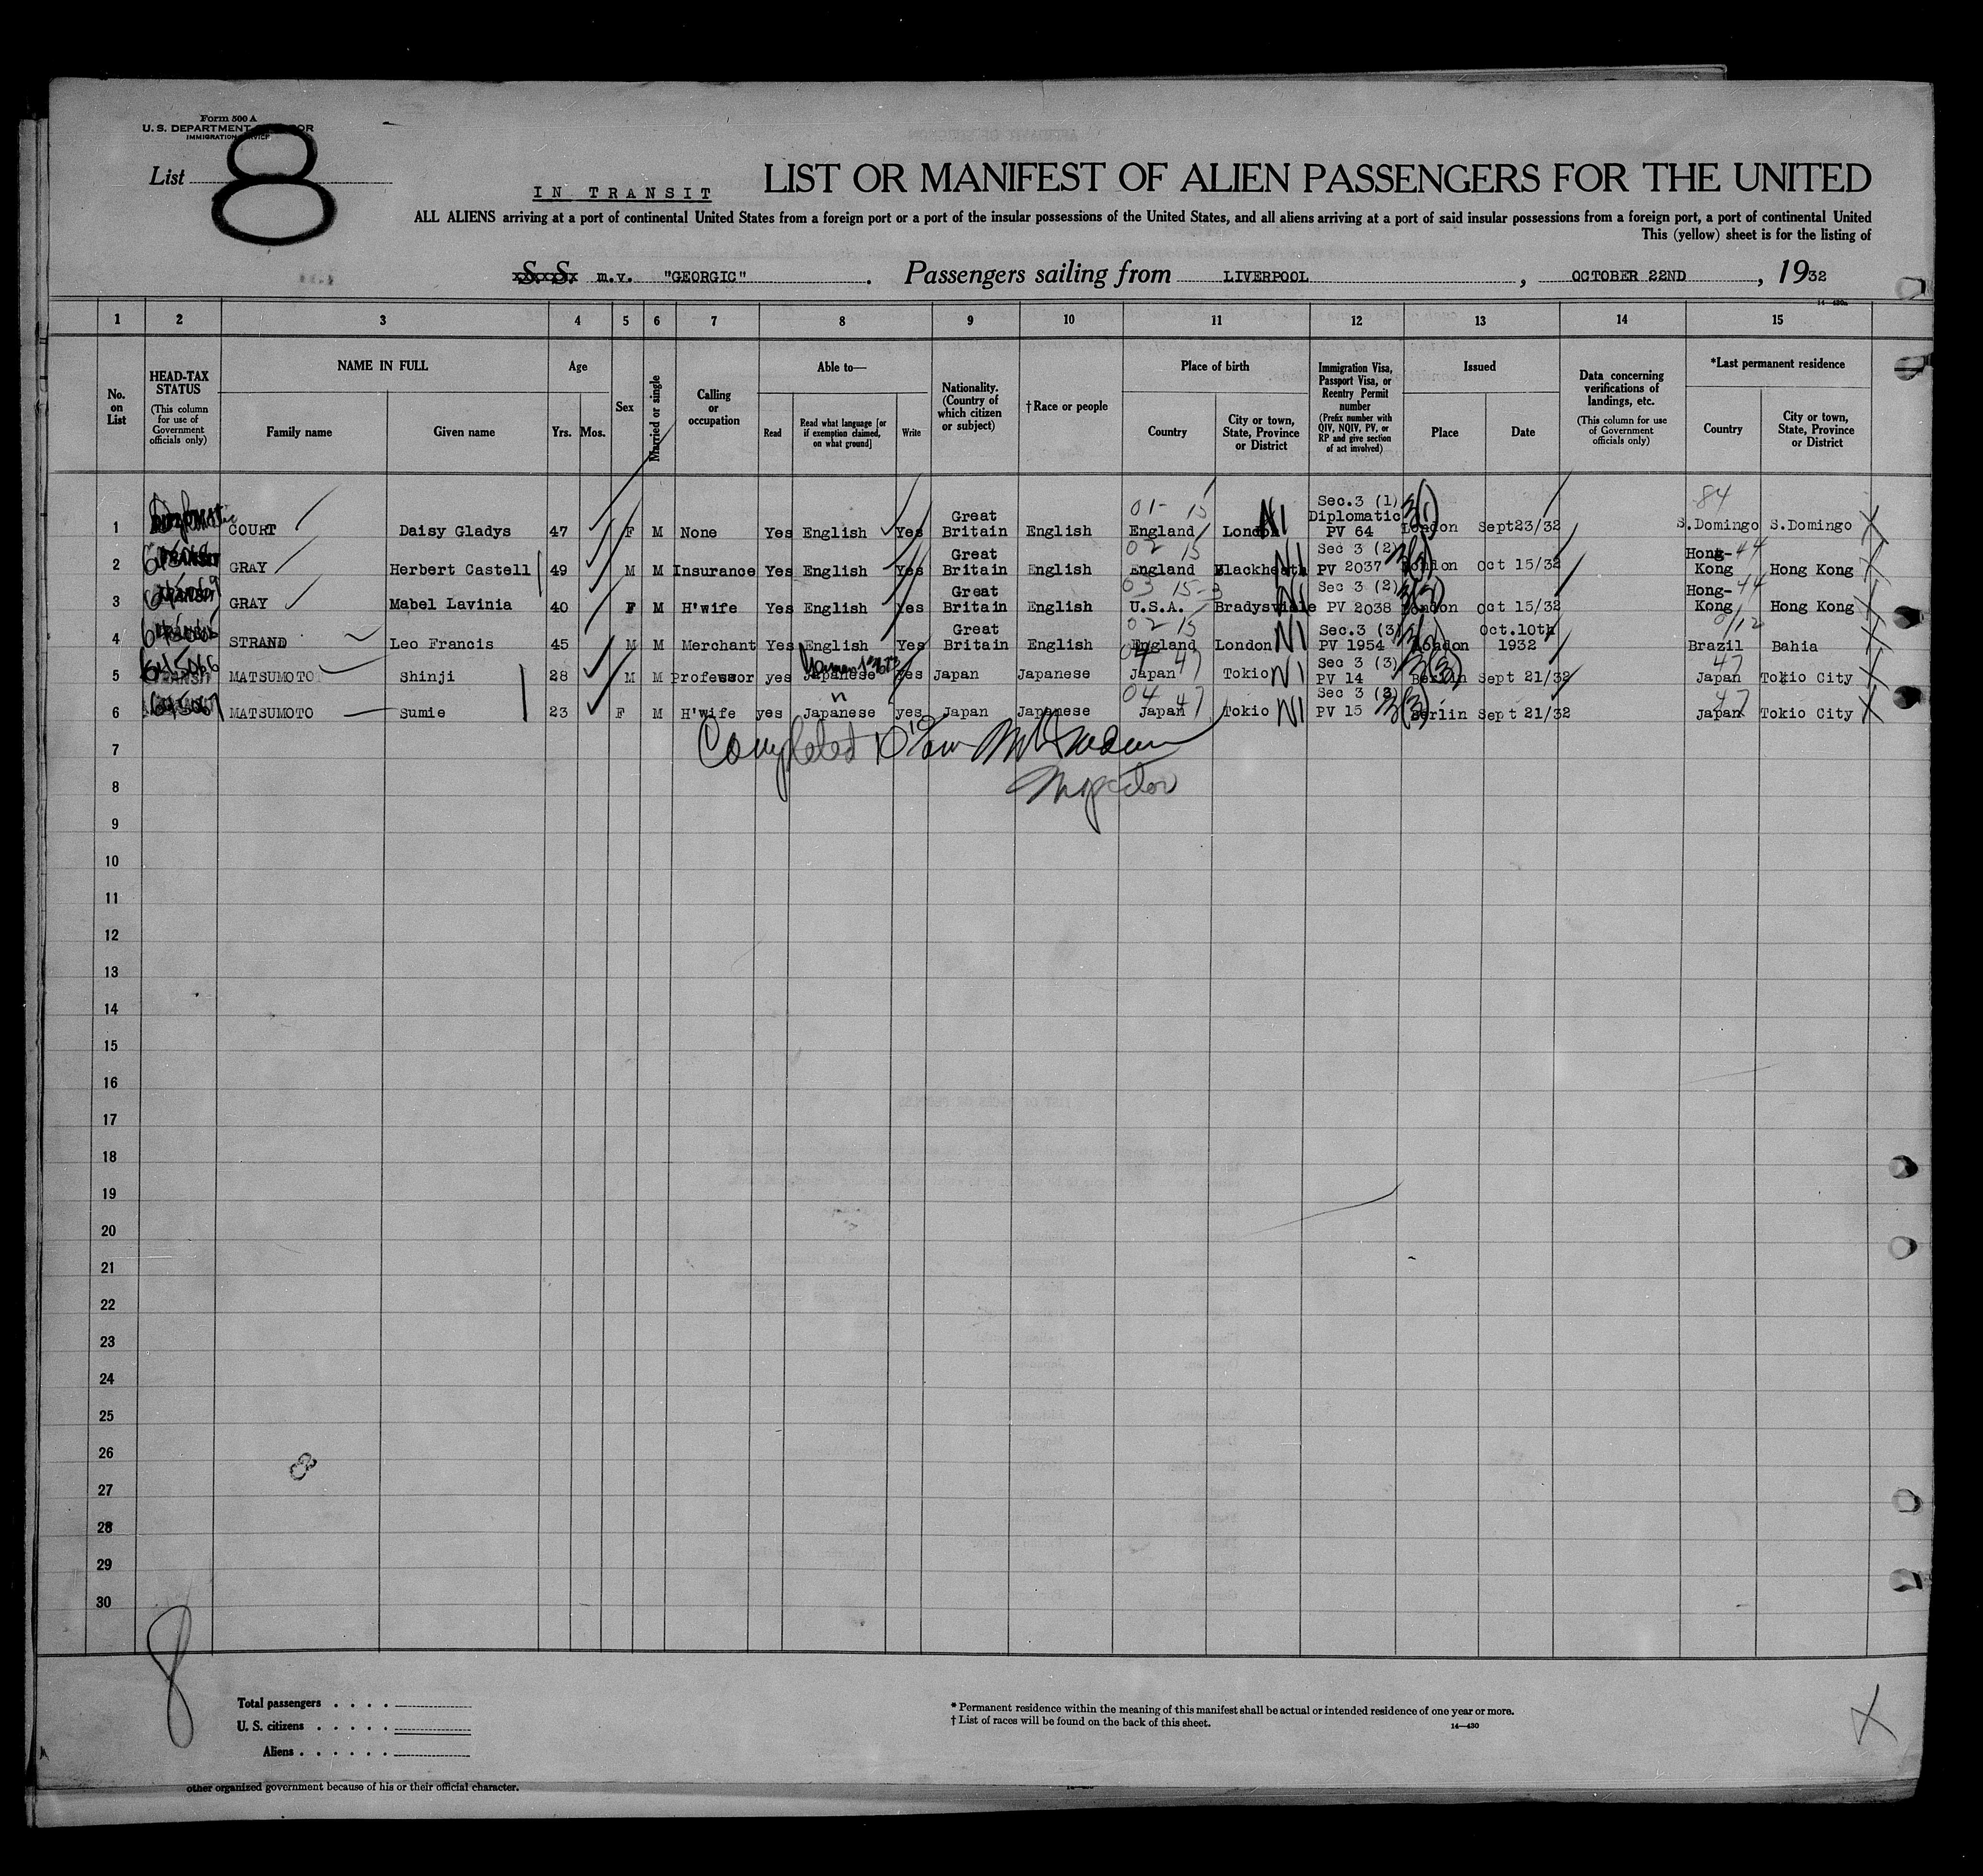 Form 500 A
U. S. DEPARTMENT
IMMIGRATION
List 8
IN TRANSIT
LIST OR MANIFEST OF ALIEN PASSENGERS FOR THE UNITED
ALL ALIENS arriving at a port of continental United States from a foreign port or a port of the insular possessions of the United States, and all aliens arriving at a port of said insular possessions from a foreign port, a port of continental United
This (yellow) sheet is for the listing of
S. S. m.v. "GEORGIC". Passengers sailing from LIVERPOOL, OCTOBER 22ND, 1932
1 2 3 4 5 6 7 8 9 10 11 12 13 14 15
No. on List
HEAD-TAX STATUS
(This column for use of Government officials only)
NAME IN FULL
Family name Given name
Age
Yrs. Mos.
Sex
Married or single
Calling or occupation
Able to—
Read
Read what language [or if exemption claimed, on what ground]
Write
Nationality. (Country of which citizen or subject)
†Race or people
Place of birth
Country
City or town, State, Province or District
Immigration Visa, Passport Visa, or Reentry Permit number
(Prefix number with QIV, NQIV, PV, or RP and give section of act involved)
Issued
Place Date
Data concerning verifications of landings, etc.
(This column for use of Government officials only)
*Last permanent residence
Country
City or town, State, Province or District
1 COURT Daisy Gladys 47 F M None Yes English Yes Great Britain English 01-15 England London NI Sec.3 (1) Diplomatic PV 64 3(1) London Sept23/32 84 S.Domingo S.Domingo X
2 GRAY Herbert Castell 49 M M Insurance Yes English Yes Great Britain English 02 15 England Blackheath NI Sec 3 (2) PV 2037 London Oct 15/32 Hong-Kong 44 Hong Kong X
3 GRAY Mabel Lavinia 40 F M H'wife Yes English Yes Great Britain English 03 15-3 U.S.A. Bradysville NI Sec 3 (2) PV 2038 London Oct 15/32 Hong-Kong 44 Hong Kong X
4 STRAND Leo Francis 45 M M Merchant Yes English Yes Great Britain English 02 15 England London NI Sec.3 (3) PV 1954 London Oct.10th 1932 Brazil Bahia X
5 MATSUMOTO Shinji 28 M M Professor yes Japanese Yes Japan Japanese 04 47 Japan Tokio NI Sec 3 (3) PV 14 3(3) Berlin Sept 21/32 47 Japan Tokio City X
6 MATSUMOTO Sumie 23 F M H'wife yes Japanese yes Japan Japanese 04 47 Japan Tokio NI Sec 3 (3) PV 15 3(3) Berlin Sept 21/32 47 Japan Tokio City X
7 Completed
8 Inspector
9
10
11
12
13
14
15
16
17
18
19
20
21
22
23
24
25
26
27
28
29
30
8
Total passengers . . . .
U. S. citizens . . . . .
Aliens . . . . . .
* Permanent residence within the meaning of this manifest shall be actual or intended residence of one year or more.
† List of races will be found on the back of this sheet.
14—430
X
other organized government because of his or their official character.